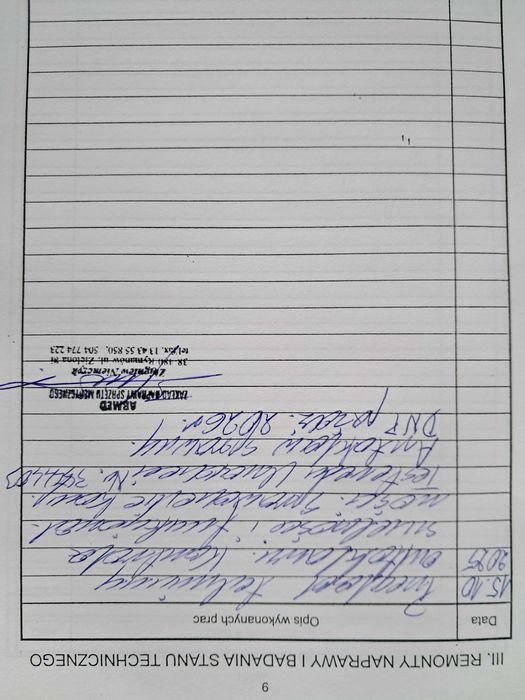 6
III. REMONTY NAPRAWY I BADANIA STANU TECHNICZNEGO
Data
Opis wykonanych prac
15.10
2025
Przegląd techniczny
autoklawu. Kontrola
szczelności i funkcjonal-
ności. Sprawdzenie
testerem Nr.
Autoklaw sprawny.
DNP paźdz. 2026r.
ARMED
ZAKŁAD NAPRAWY SPRZĘTU MEDYCZNEGO
Zbigniew Niemczyk
38-480 Rymanów, ul. Zielona 81
tel./fax. 13 43 55 850, 504 774 223